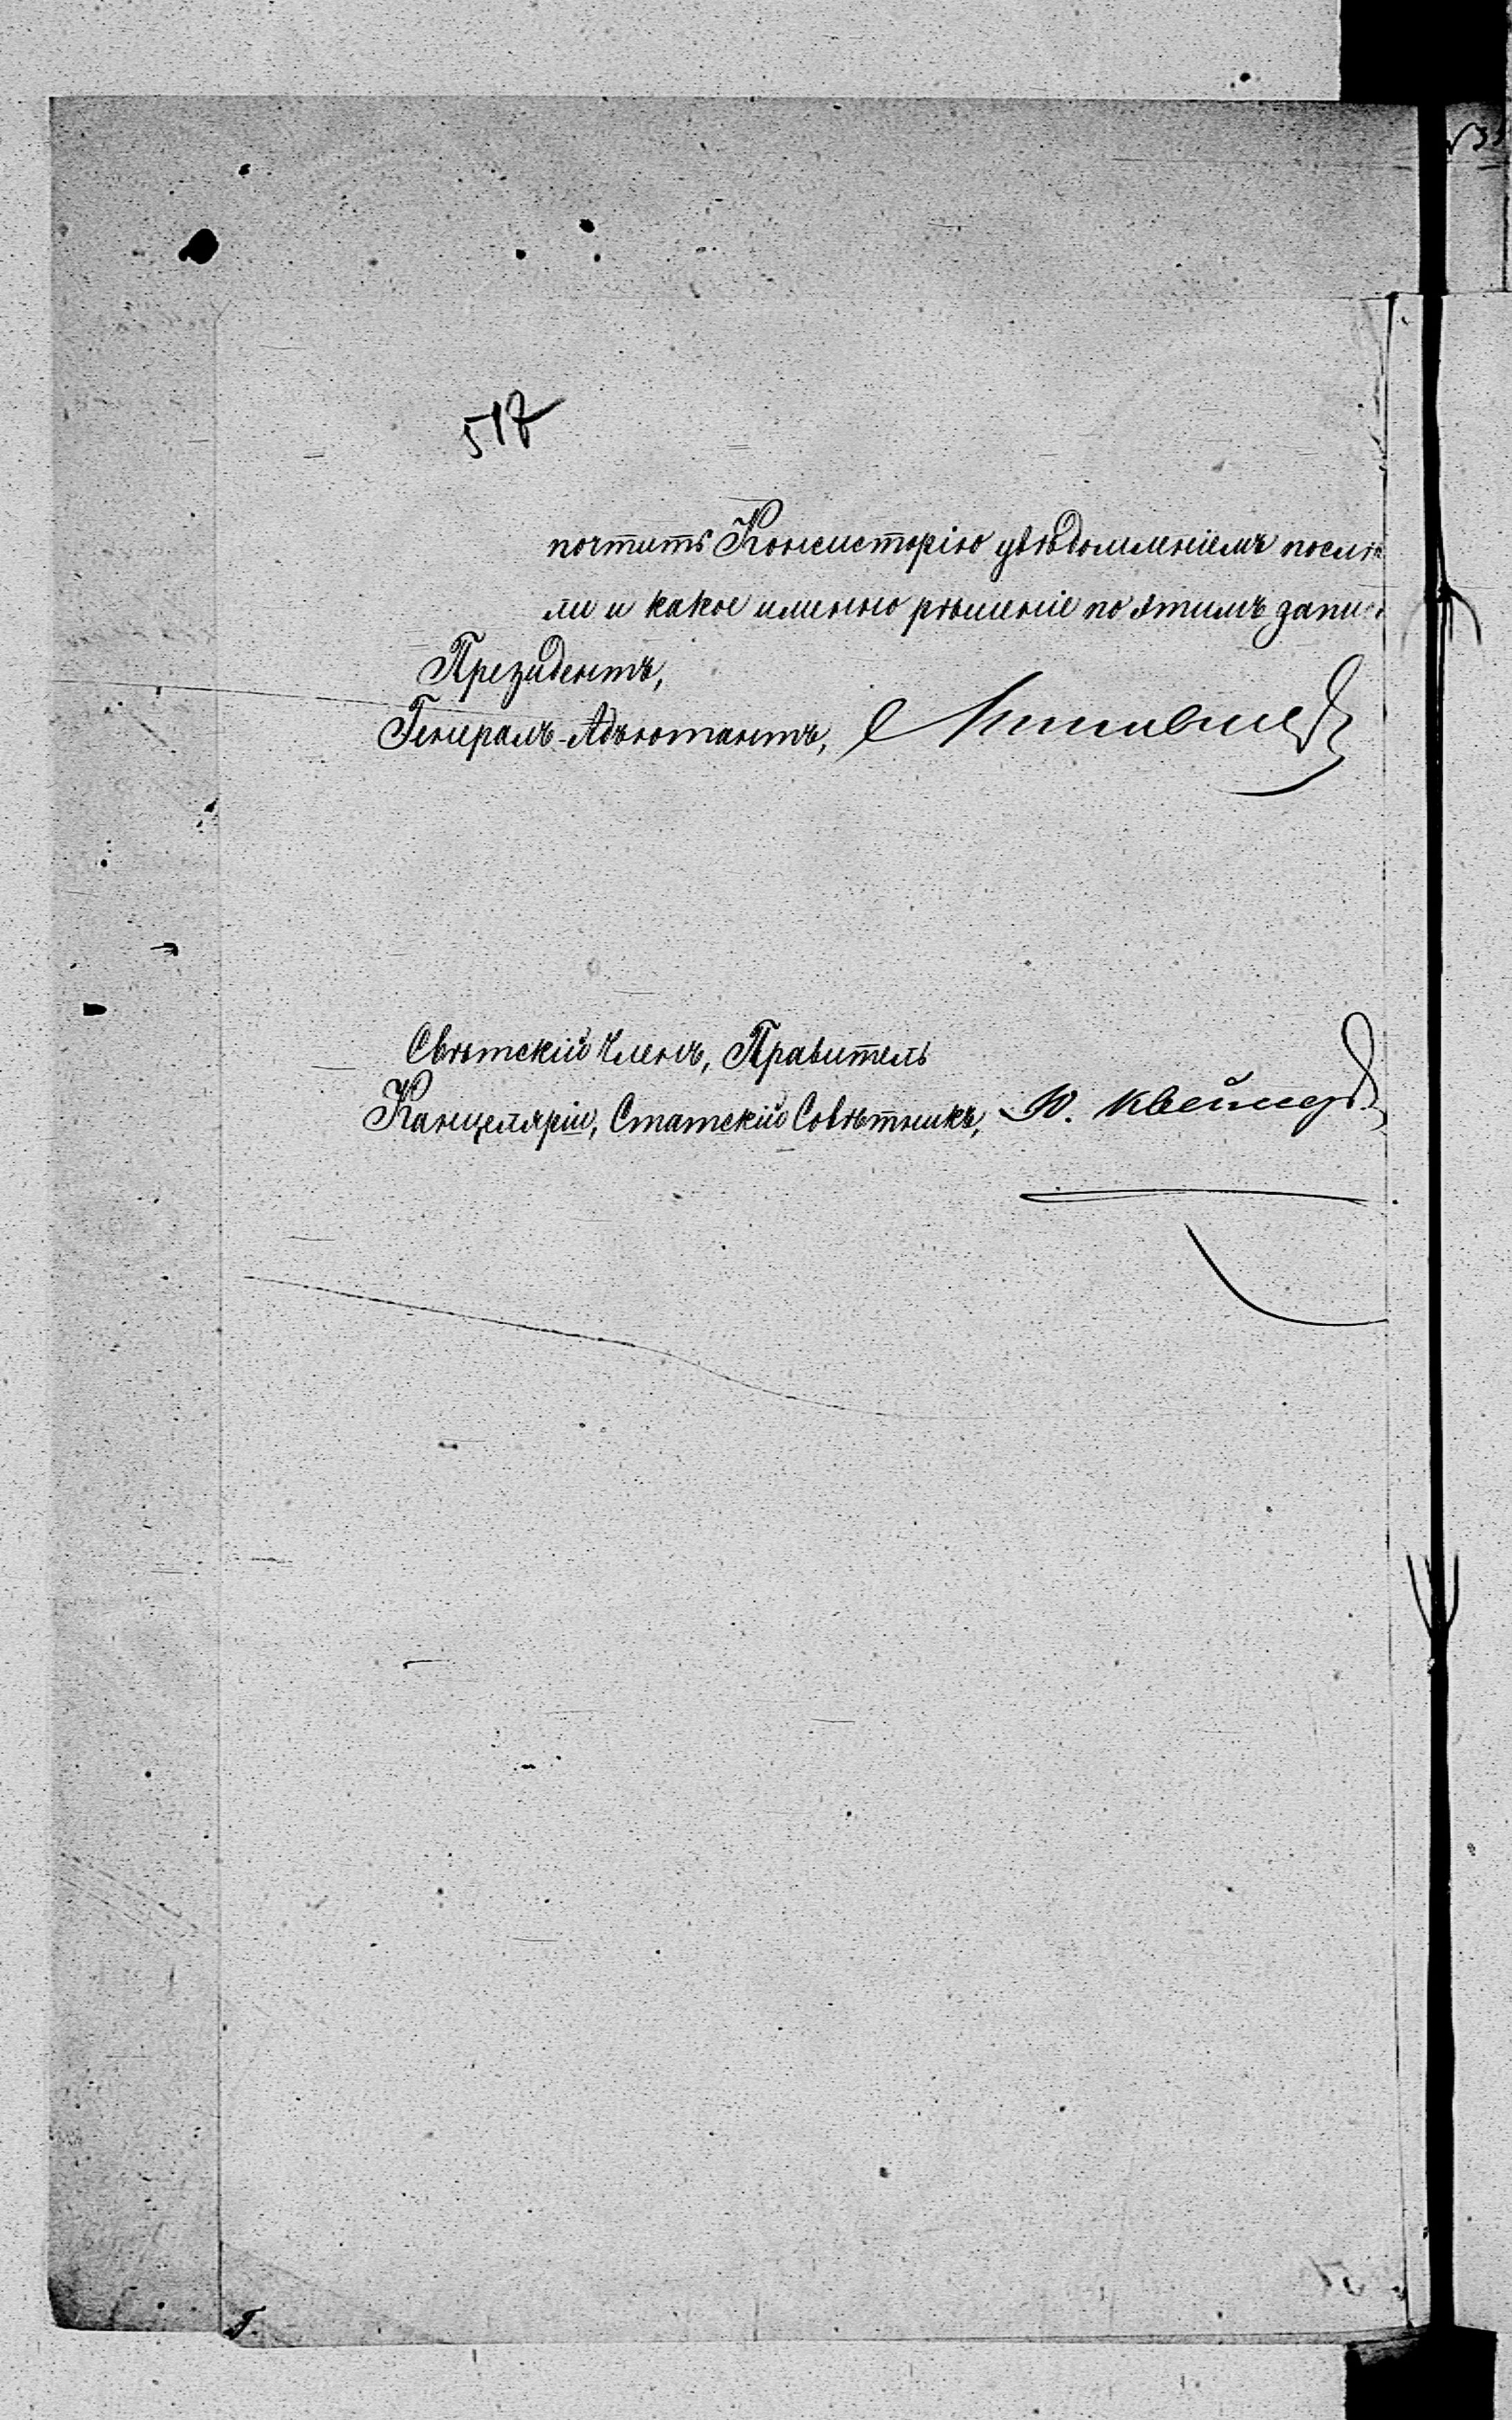 517
почтить Консисторію увѣдомленіемъ послѣ
ли и какое именно рѣшеніе по этимъ запи
Президентъ,
Генералъ-Адъютантъ,
Свѣтскій Членъ, Правитель
Канцеляріи, Статскій Совѣтникъ, Ю.